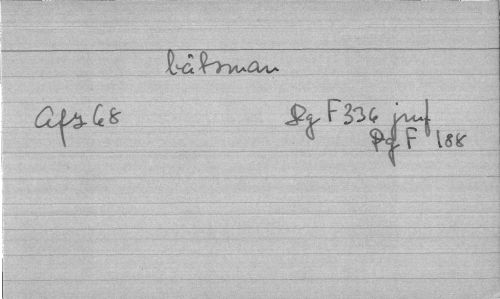 båtsman
Afz 68 Dg F 336 jmf
Dg F 188